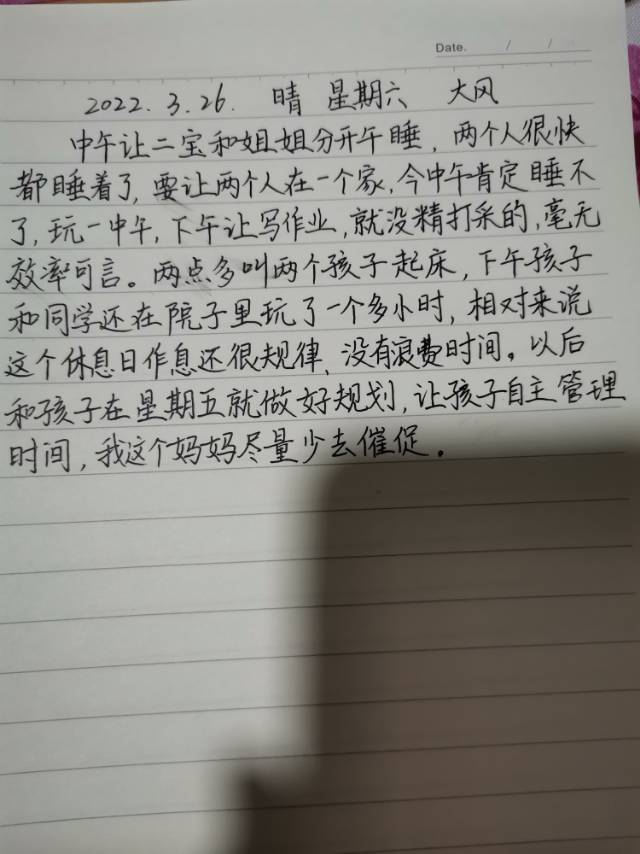 Date. / /
2022.3.26. 晴 星期六 大风
中午让二宝和姐姐分开午睡，两个人很快
都睡着了，要让两个人在一个家，今中午肯定睡不
了，玩一中午，下午让写作业，就没精打采的，毫无
效率可言。两点多叫两个孩子起床，下午孩子
和同学还在院子里玩了一个多小时，相对来说
这个休息日作息还很规律，没有浪费时间。以后
和孩子在星期五就做好规划，让孩子自主管理
时间，我这个妈妈尽量少去催促。